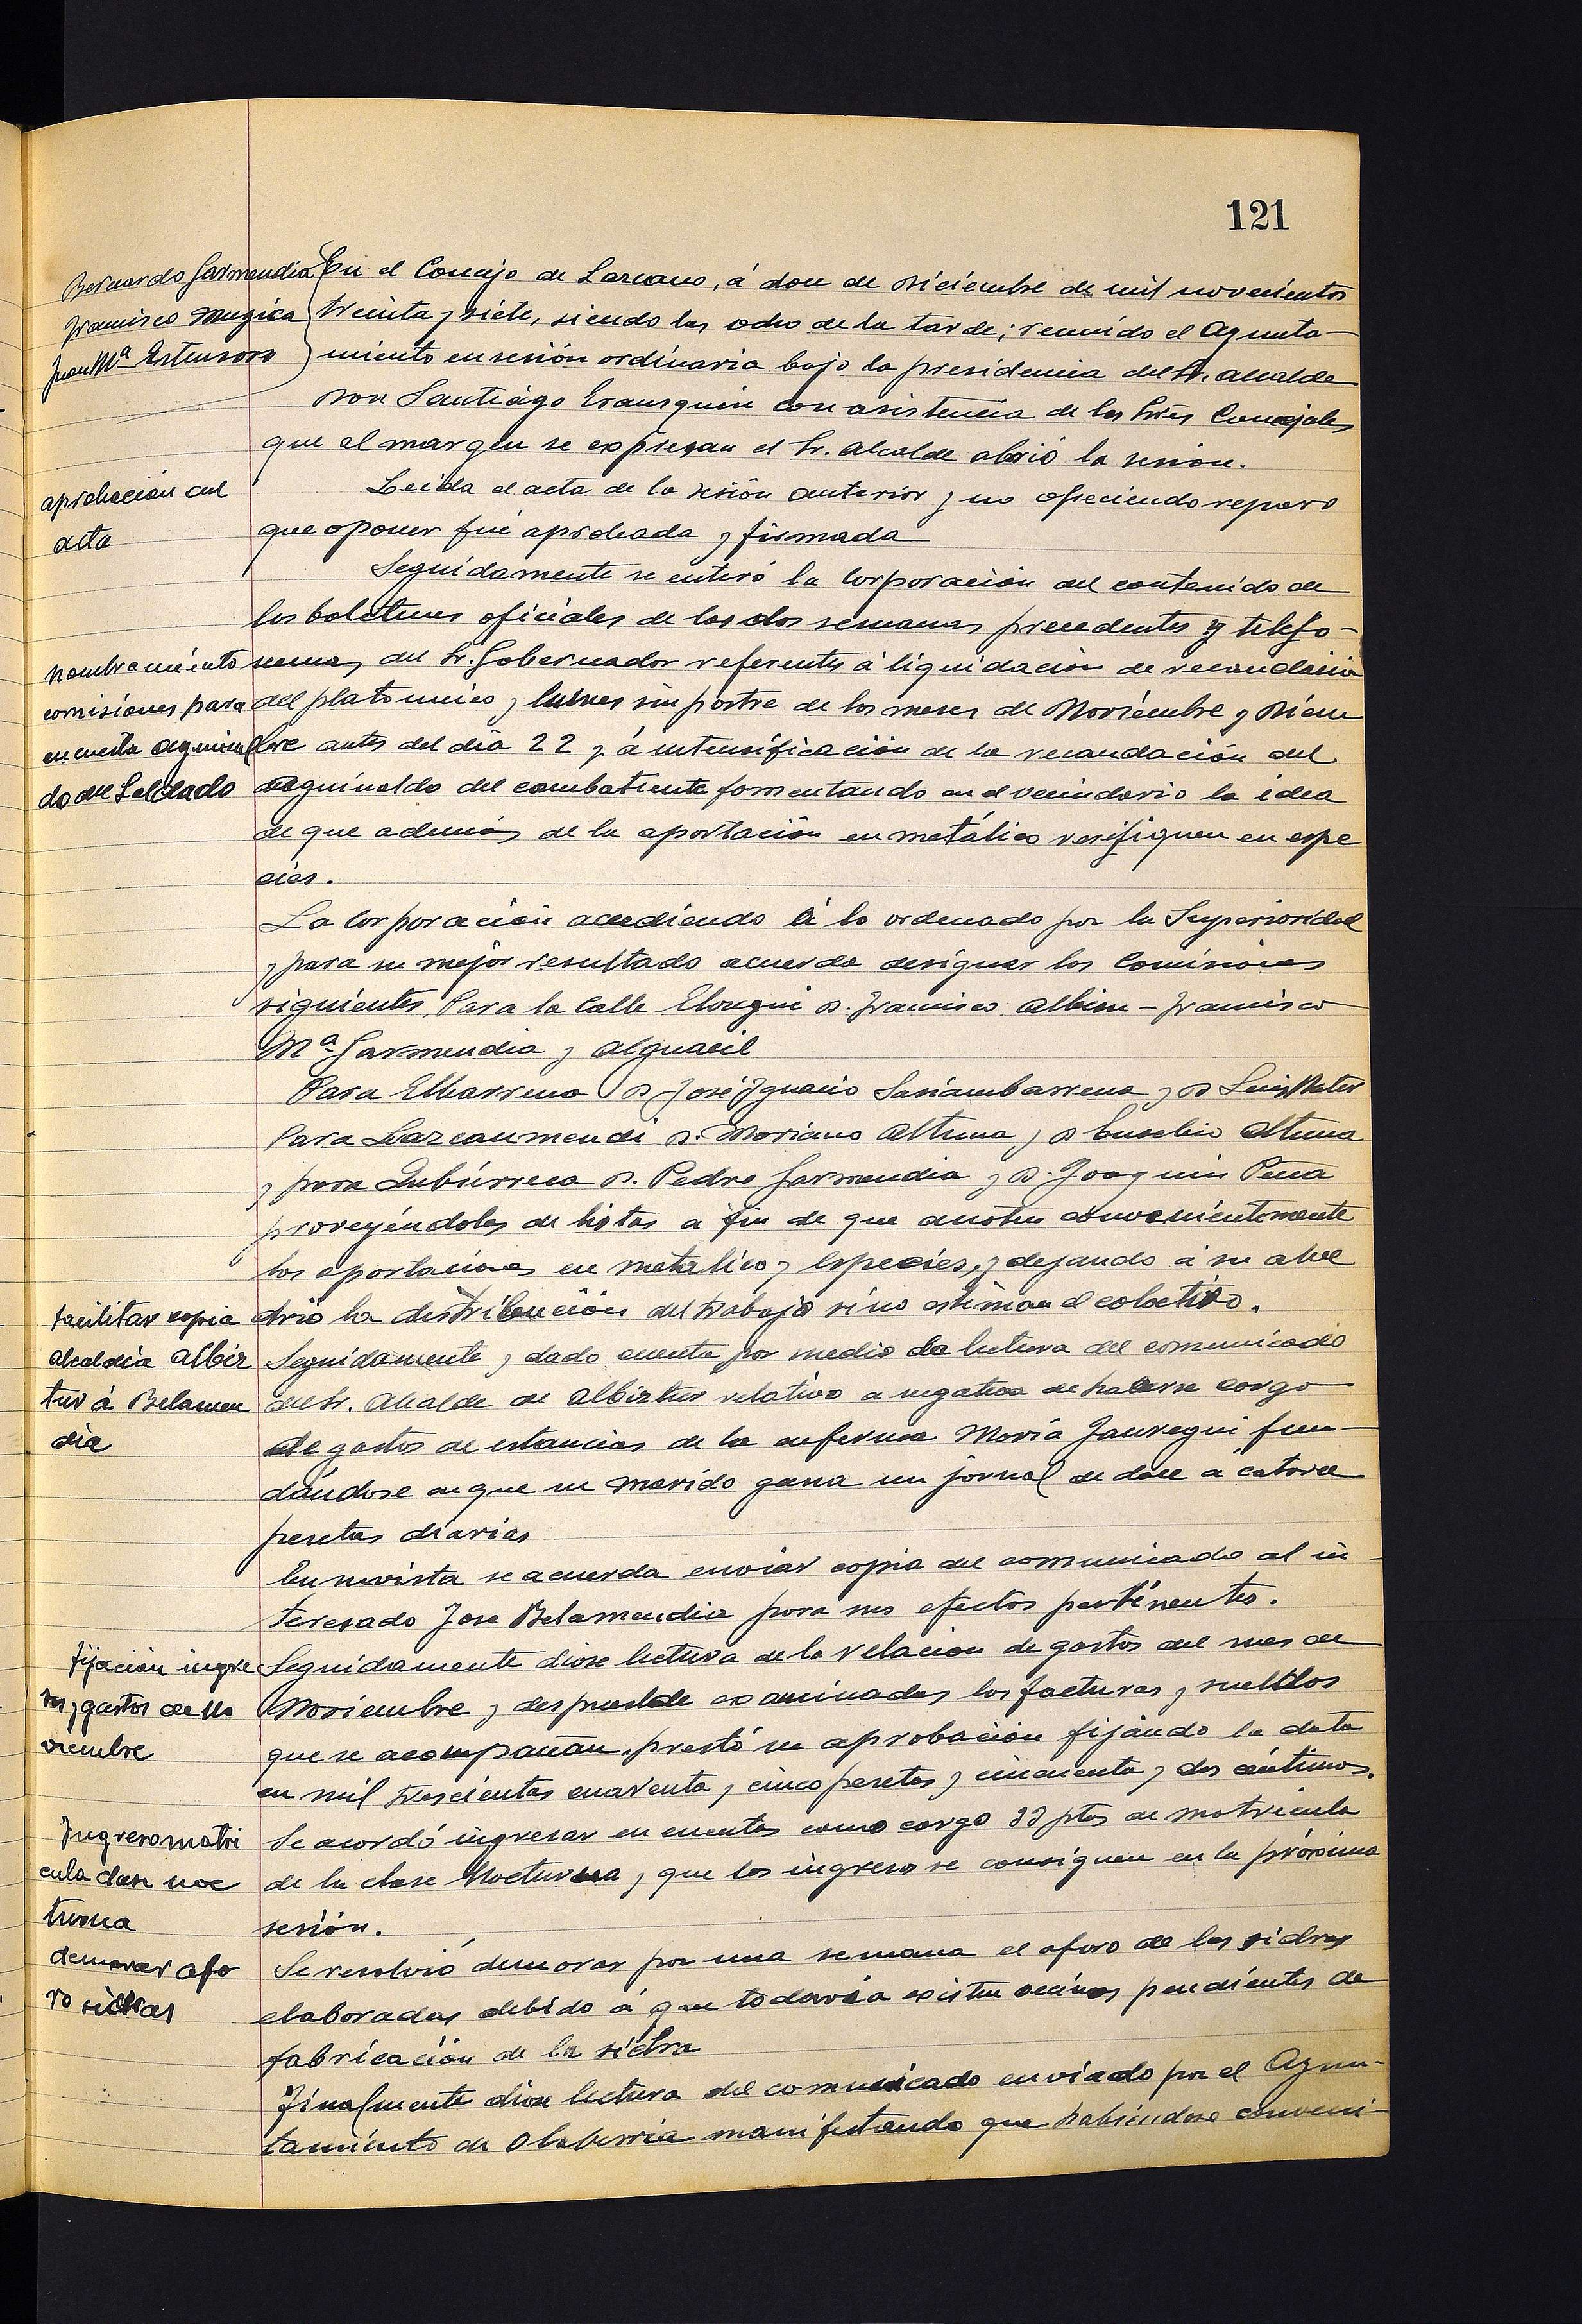 121
Bernardo Garmendia
Francisco Mugica
Juan Mª Estensoro
En el Concejo de Lazcano, á doce de Diciembre de mil novecientos
treinta y siete, siendo las ocho de la tarde; reunido el Ayunta-
miento en sesión ordinaria bajo la presidencia del Sr. Alcalde
Don Santiago Erausquin con asistencia de los Sres Concejales
que al margen se expresan el Sr. Alcalde abrió la sesion.
aprobación del
acta
Leida el acta de la sesión anterior y no ofreciendo reparo
que oponer fué aprobada y firmada
Seguidamente se enteró la Corporación del contenido de
los boletines oficiales de las dos semanas precedentes y telefo-
nombramiento
comisiones para
encuesta aguinal
do del Soldado
nemas del Sr. Gobernador referentes á liquidación de recaudación
del plato unico y lunes sin postre de los meses de Noviembre y Diciem
bre antes del día 22 y á intensificación de la recaudación del
aguinaldo del combatiente fomentando en el vecindario la idea
de que además de la aportación en metálico verifiquen en espe
cies.
La Corporación accediendo á lo ordenado por la Superioridad
y para su mejor resultado acuerda designar las Comisiones
siguientes, Para la Calle Elosegui D. Francisco Albisu - Francisco
Mª Garmendia y Alguacil
Para Elbarrena D José Ignacio Sasiambarrena y D Luis Mates
Para Lazcanmendi D. Mariano Altuna y D Eusebio Altuna
y para Zubúrreca D. Pedro Garmendia y D. Joaquin Peña
proveyéndoles de listas a fin de que anoten convenientemente
las aportaciones en metalico y especies, y dejando á su albe
drio la distribución del trabajo si no estiman el colectivo.
facilitar copia
alcaldia Albiz
tur á Belamen
dia
Seguidamente y dado cuenta por medio de lectura del comunicado
del Sr. Alcalde de Albiztur relativo a negativa de hacerse cargo
de gastos de estancias de la enferma María Jauregui fun-
dándose en que su marido gana un jornal de doce á catorce
pesetas diarias
En su vista se acuerda enviar copia del comunicado al in-
teresado Jose Belamendia para sus efectos pertinentes.
fijación ingre
sos y gastos de No
viembre
Seguidamente diose lectura de la relacion de gastos del mes de
Noviembre y despues de examinadas las facturas y sueldos
que se acompañan, prestó su aprobación fijando la data
en mil trescientas cuarenta y cinco pesetas y cincuenta y dos céntimos.
Ingreso matri
cula clase noc
turna
Se acordó ingresar en cuentas como cargo 33 ptas de matricula
de la clase Nocturna y que los ingresos se consignen en la próxima
sesión.
demorar afo
ro sidras
Se resolvió demorar por una semana el aforo de las sidras
elaboradas debido á que todavía existen vecinos pendientes de
fabricación de la sidra
Finalmente diose lectura del comunicado enviado por el Ayun-
tamiento de Olaberria manifestando que habiendose conveni-